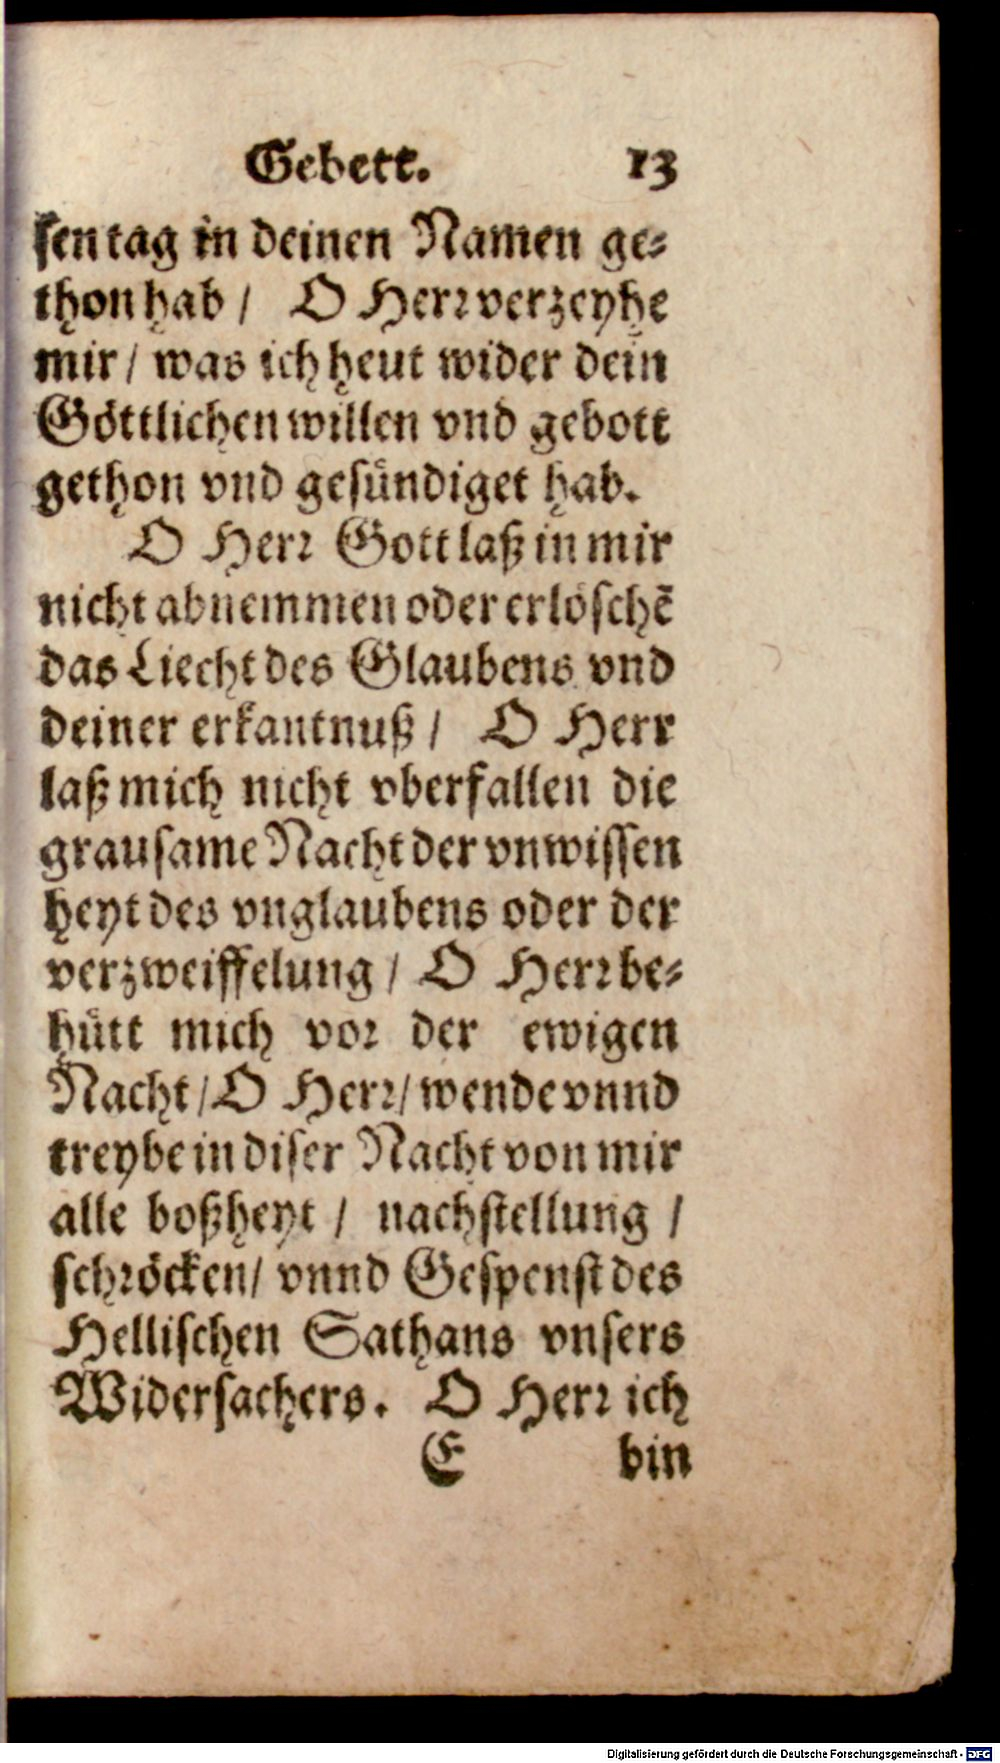 Gebett. 13
sen tag in deinen Namen ge⸗
thon hab / O Herr verzeyhe
mir / was ich heut wider dein
Göttlichen willen vnd gebott
gethon vnd gesündiget hab.
O Herr Gott laß in mir
nicht abnemmen oder erlöschẽ
das Liecht des Glaubens vnd
deiner erkantnuß / O Herr
laß mich nicht vberfallen die
grausame Nacht der vnwissen
heyt des vnglaubens oder der
verzweiffelung / O Herr be⸗
hütt mich vor der ewigen
Nacht / O Herr / wende vnnd
treybe in diser Nacht von mir
alle boßheyt / nachstellung /
schröcken / vnnd Gespenst des
Hellischen Sathans vnsers
Widersachers. O Herr ich
E bin
Digitalisierung gefördert durch die Deutsche Forschungsgemeinschaft - DFG